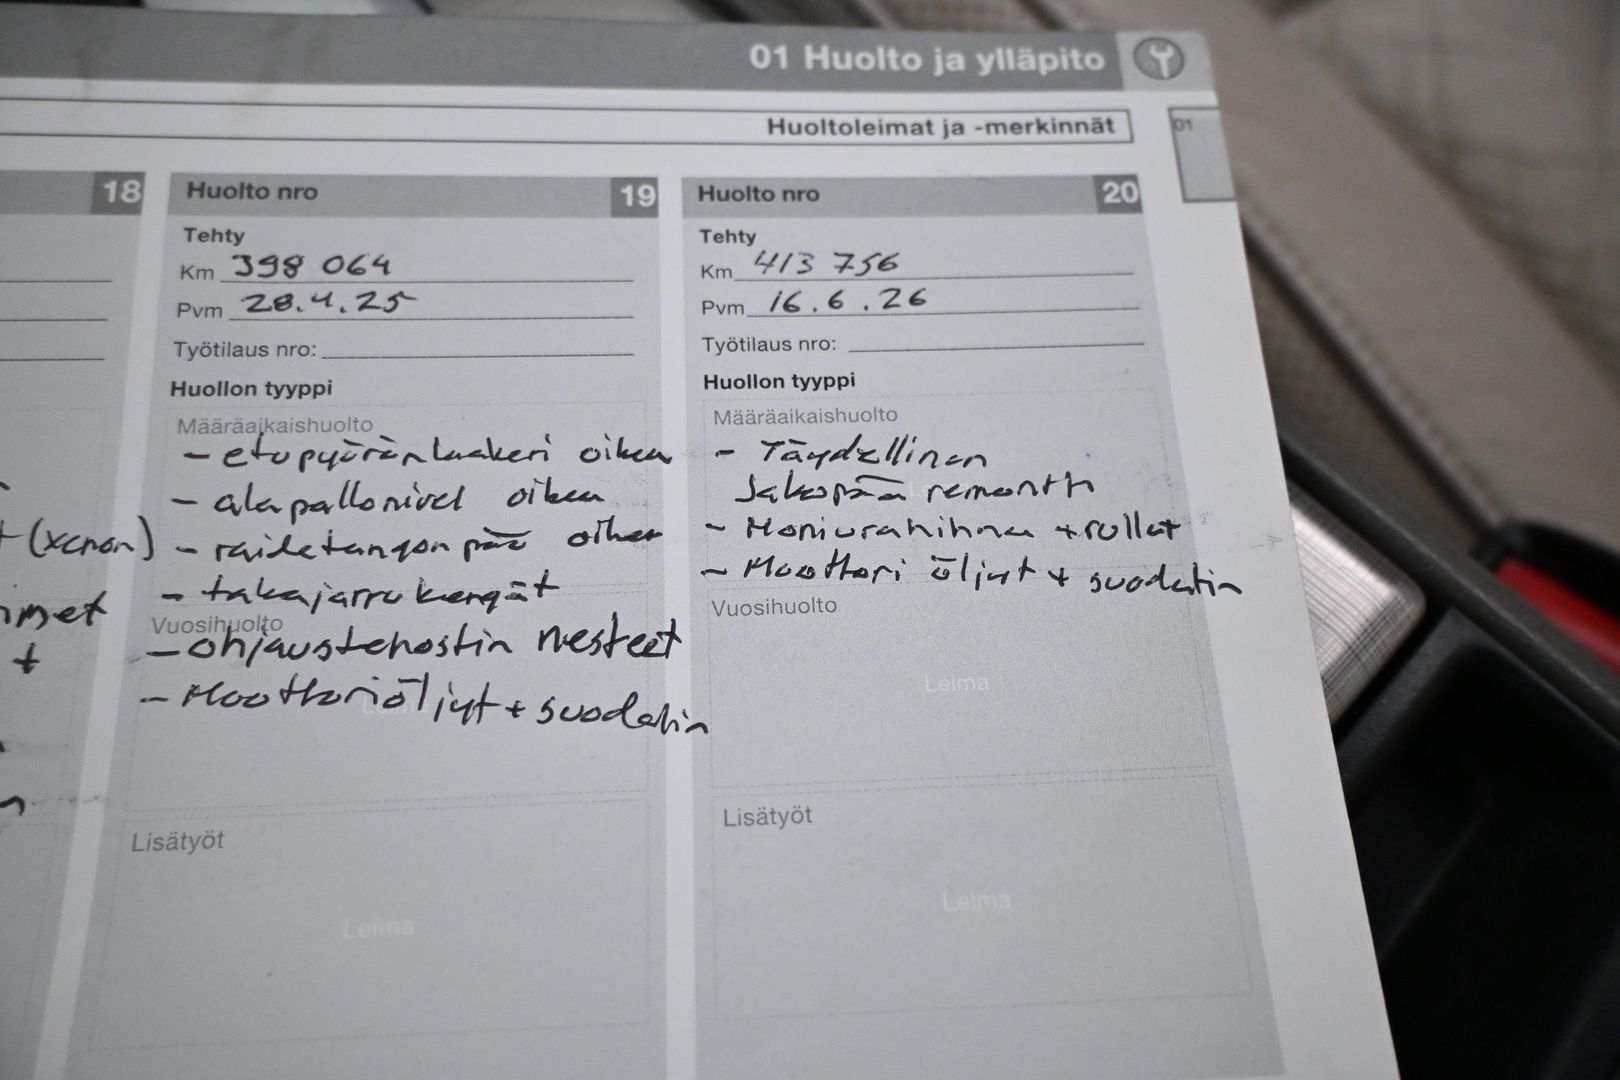 01 Huolto ja ylläpito
Huoltoleimat ja -merkinnät
01
18
(xenon)
+
Huolto nro 19
Tehty
Km 398 064
Pvm 28.4.25
Työtilaus nro:
Huollon tyyppi
Määräaikaishuolto
- etupyöränlaakeri oikea
- alapallonivel oikea
- raidetangon pää oikea
- takajarrukengät
Vuosihuolto
- ohjaustehostin nesteet
- Moottoriöljyt + suodatin
Lisätyöt
Leima
Huolto nro 20
Tehty
Km 413 756
Pvm 16.6.26
Työtilaus nro:
Huollon tyyppi
Määräaikaishuolto
- Täydellinen
Jakopää remontti
- Moniurahihna + rullat
- Moottori öljyt + suodatin
Vuosihuolto
Leima
Lisätyöt
Leima